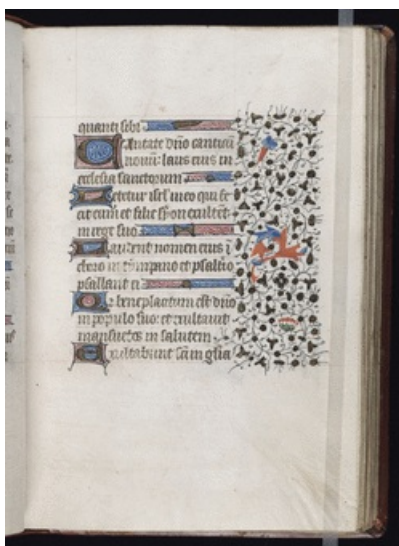 quanti sibi
Cantate dño canticũ
nouũ: laus eius in
ecclesia sanctorum
Letetur isrl in eo qui fe
cit eum et filie syon exultẽt
in rege suo
Laudent nomen eius ĩ
choro in tỹmpano et psaltio
psallant ei
Qr beneplacitum est dño
in populo suo: et exultauit
mansuetos in salutem
Exultabunt sci in glia